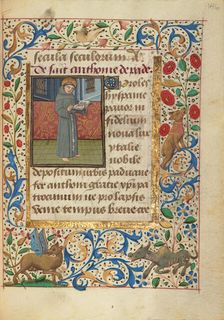 secula seculorum. A
De saint anthoine de pade
Proles
hyspanie
pauor in
fidelium
noua lux
ytalie
nobile
depositum urbis paduane
fer anthoni gratie xpi pa
trocinium ne prolapsis
venie tempus breve cre